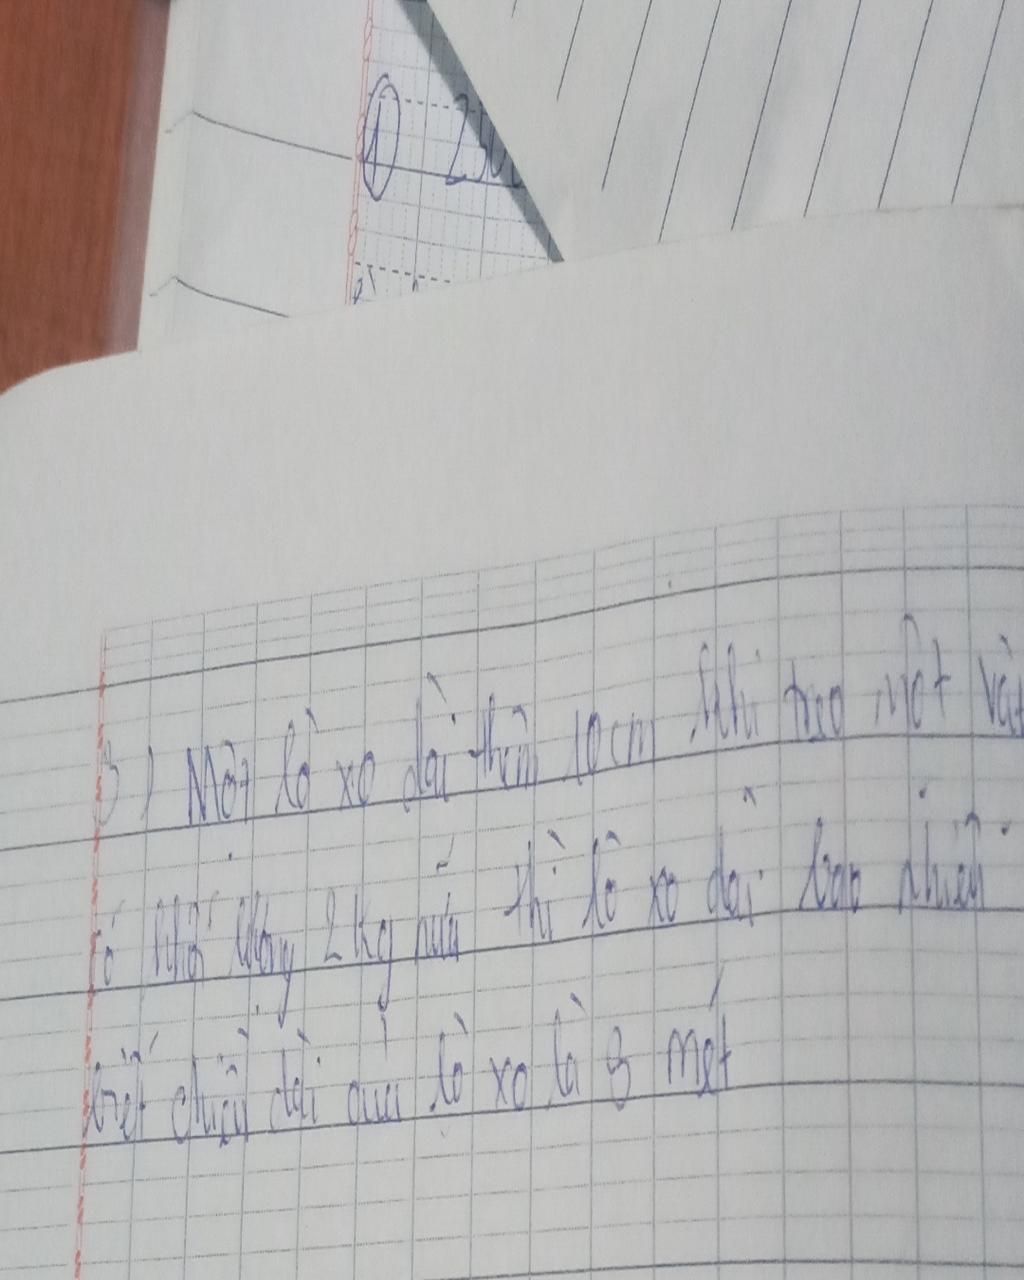 ① 2
3) Một lò xo dài thêm 10cm khi treo một vật
có khối lượng 2kg nếu thì lò xo dài bao nhiêu
biết chiều dài của lò xo là 3 mét